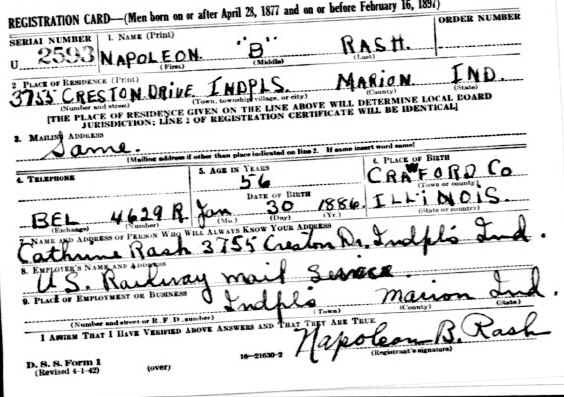 REGISTRATION CARD—(Men born on or after April 28, 1877 and on or before February 16, 1897)
SERIAL NUMBER 1. NAME (Print) ORDER NUMBER
U 2593 NAPOLEON "B" RASH.
(First) (Middle) (Last)
2. PLACE OF RESIDENCE (Print)
3755 CRESTON DRIVE INDPLS. MARION IND.
(Number and street) (Town, township, village, or city) (County) (State)
[THE PLACE OF RESIDENCE GIVEN ON THE LINE ABOVE WILL DETERMINE LOCAL BOARD
JURISDICTION; LINE 2 OF REGISTRATION CERTIFICATE WILL BE IDENTICAL]
3. MAILING ADDRESS
Same.
(Mailing address if other than place indicated on line 2. If same insert word same)
4. TELEPHONE 5. AGE IN YEARS 6. PLACE OF BIRTH
56 CRAWFORD CO
DATE OF BIRTH (Town or county)
BEL 4629 R Jan 30 1886. ILLINOIS.
(Exchange) (Number) (Mo.) (Day) (Yr.) (State or country)
7. NAME AND ADDRESS OF PERSON WHO WILL ALWAYS KNOW YOUR ADDRESS
Cathrine Rash 3755 Creston Dr. Indpls Ind.
8. EMPLOYER'S NAME AND ADDRESS
U.S. Railway mail Service.
9. PLACE OF EMPLOYMENT OR BUSINESS
Indpls Marion Ind.
(Number and street or R. F. D. number) (Town) (County) (State)
I AFFIRM THAT I HAVE VERIFIED ABOVE ANSWERS AND THAT THEY ARE TRUE.
Napoleon B. Rash
D. S. S. Form 1 16—21630-2 (Registrant's signature)
(Revised 4-1-42) (over)